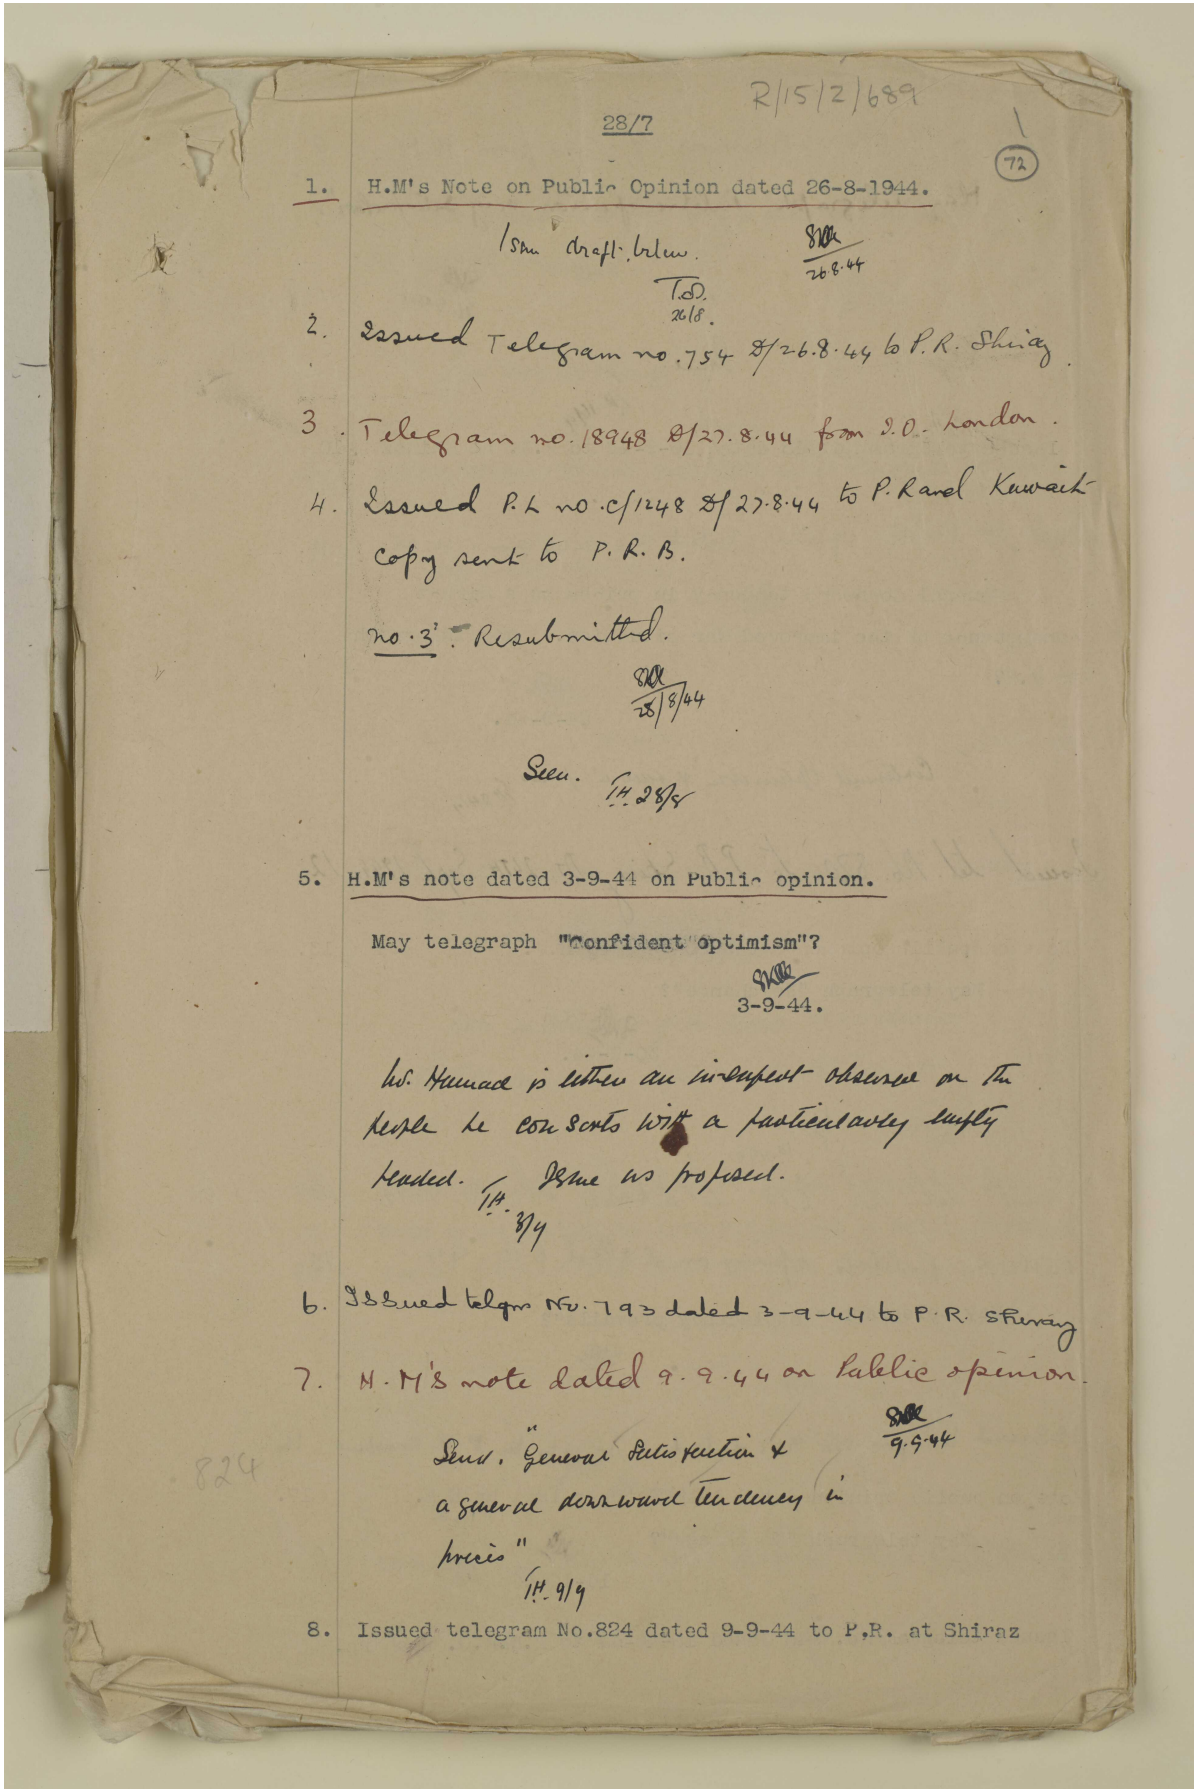 R/15/2/689
28/7
72
1. H.M's Note on Public Opinion dated 26-8-1944.
draft below.
26.8.44
26/8.
2. Issued Telegram no. 754 D/26.8.44 to P.R. Shiraz
3. Telegram no. 18948 D/27.8.44 from I.O. London.
4. Issued P.L no. C/1248 D/27.8.44 to P.R and Kuwait
copy sent to P.R.B.
no. 3. Resubmitted.
28/8/44
Seen.
T.H. 28/8
5. H.M's note dated 3-9-44 on Public opinion.
May telegraph "Confident optimism"?
3-9-44.
is either an observer or the
people he consorts with a particularly empty
headed. Issue as proposed.
T.H.
3/9
6. Issued telgm No. 793 dated 3-9-44 to P.R. Shiraz
7. H.M's note dated 9.9.44 on Public opinion.
9.9.44
Send. "General Satisfaction &
a general downward tendency in
prices"
T.H. 9/9
824
8. Issued telegram No.824 dated 9-9-44 to P.R. at Shiraz